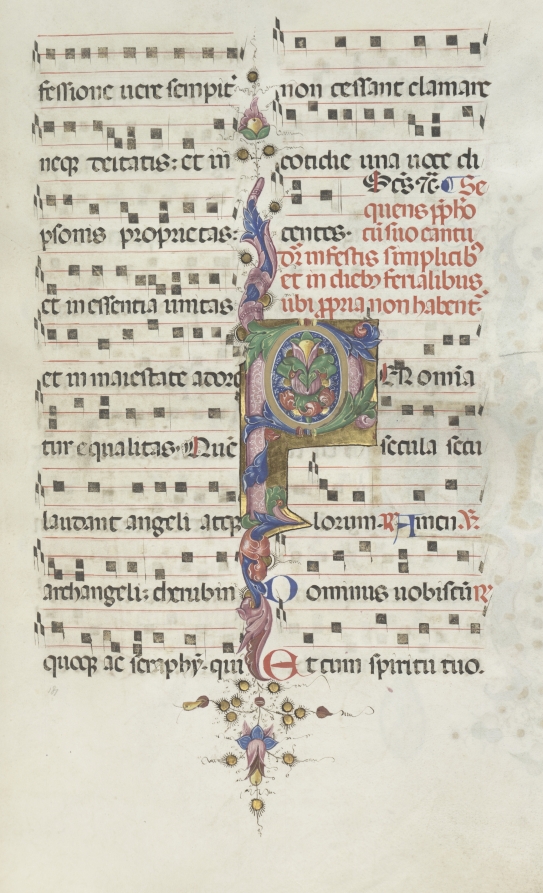 fessione uere sempit̃
neq; deitatis: et in
psonis proprietas:
et in essentia unitas
et in maiestate adore
tur equalitas. Quē
laudant angeli atq;
archangeli: cherubin
quoq; ac seraphỹ. qui
non cessant clamare
cotidie una uoce di
centes. Sc̄s. Sc̄. Se
quens p̄pho
cū suo cantu
in festis simplicib9
et in dieb9 ferialibus
ubi ꝓpria non habent.
Per omnia
secula secu
lorum. ℟ Amen. ℣
Dominus uobiscū ℟
Et cum spiritu tuo.